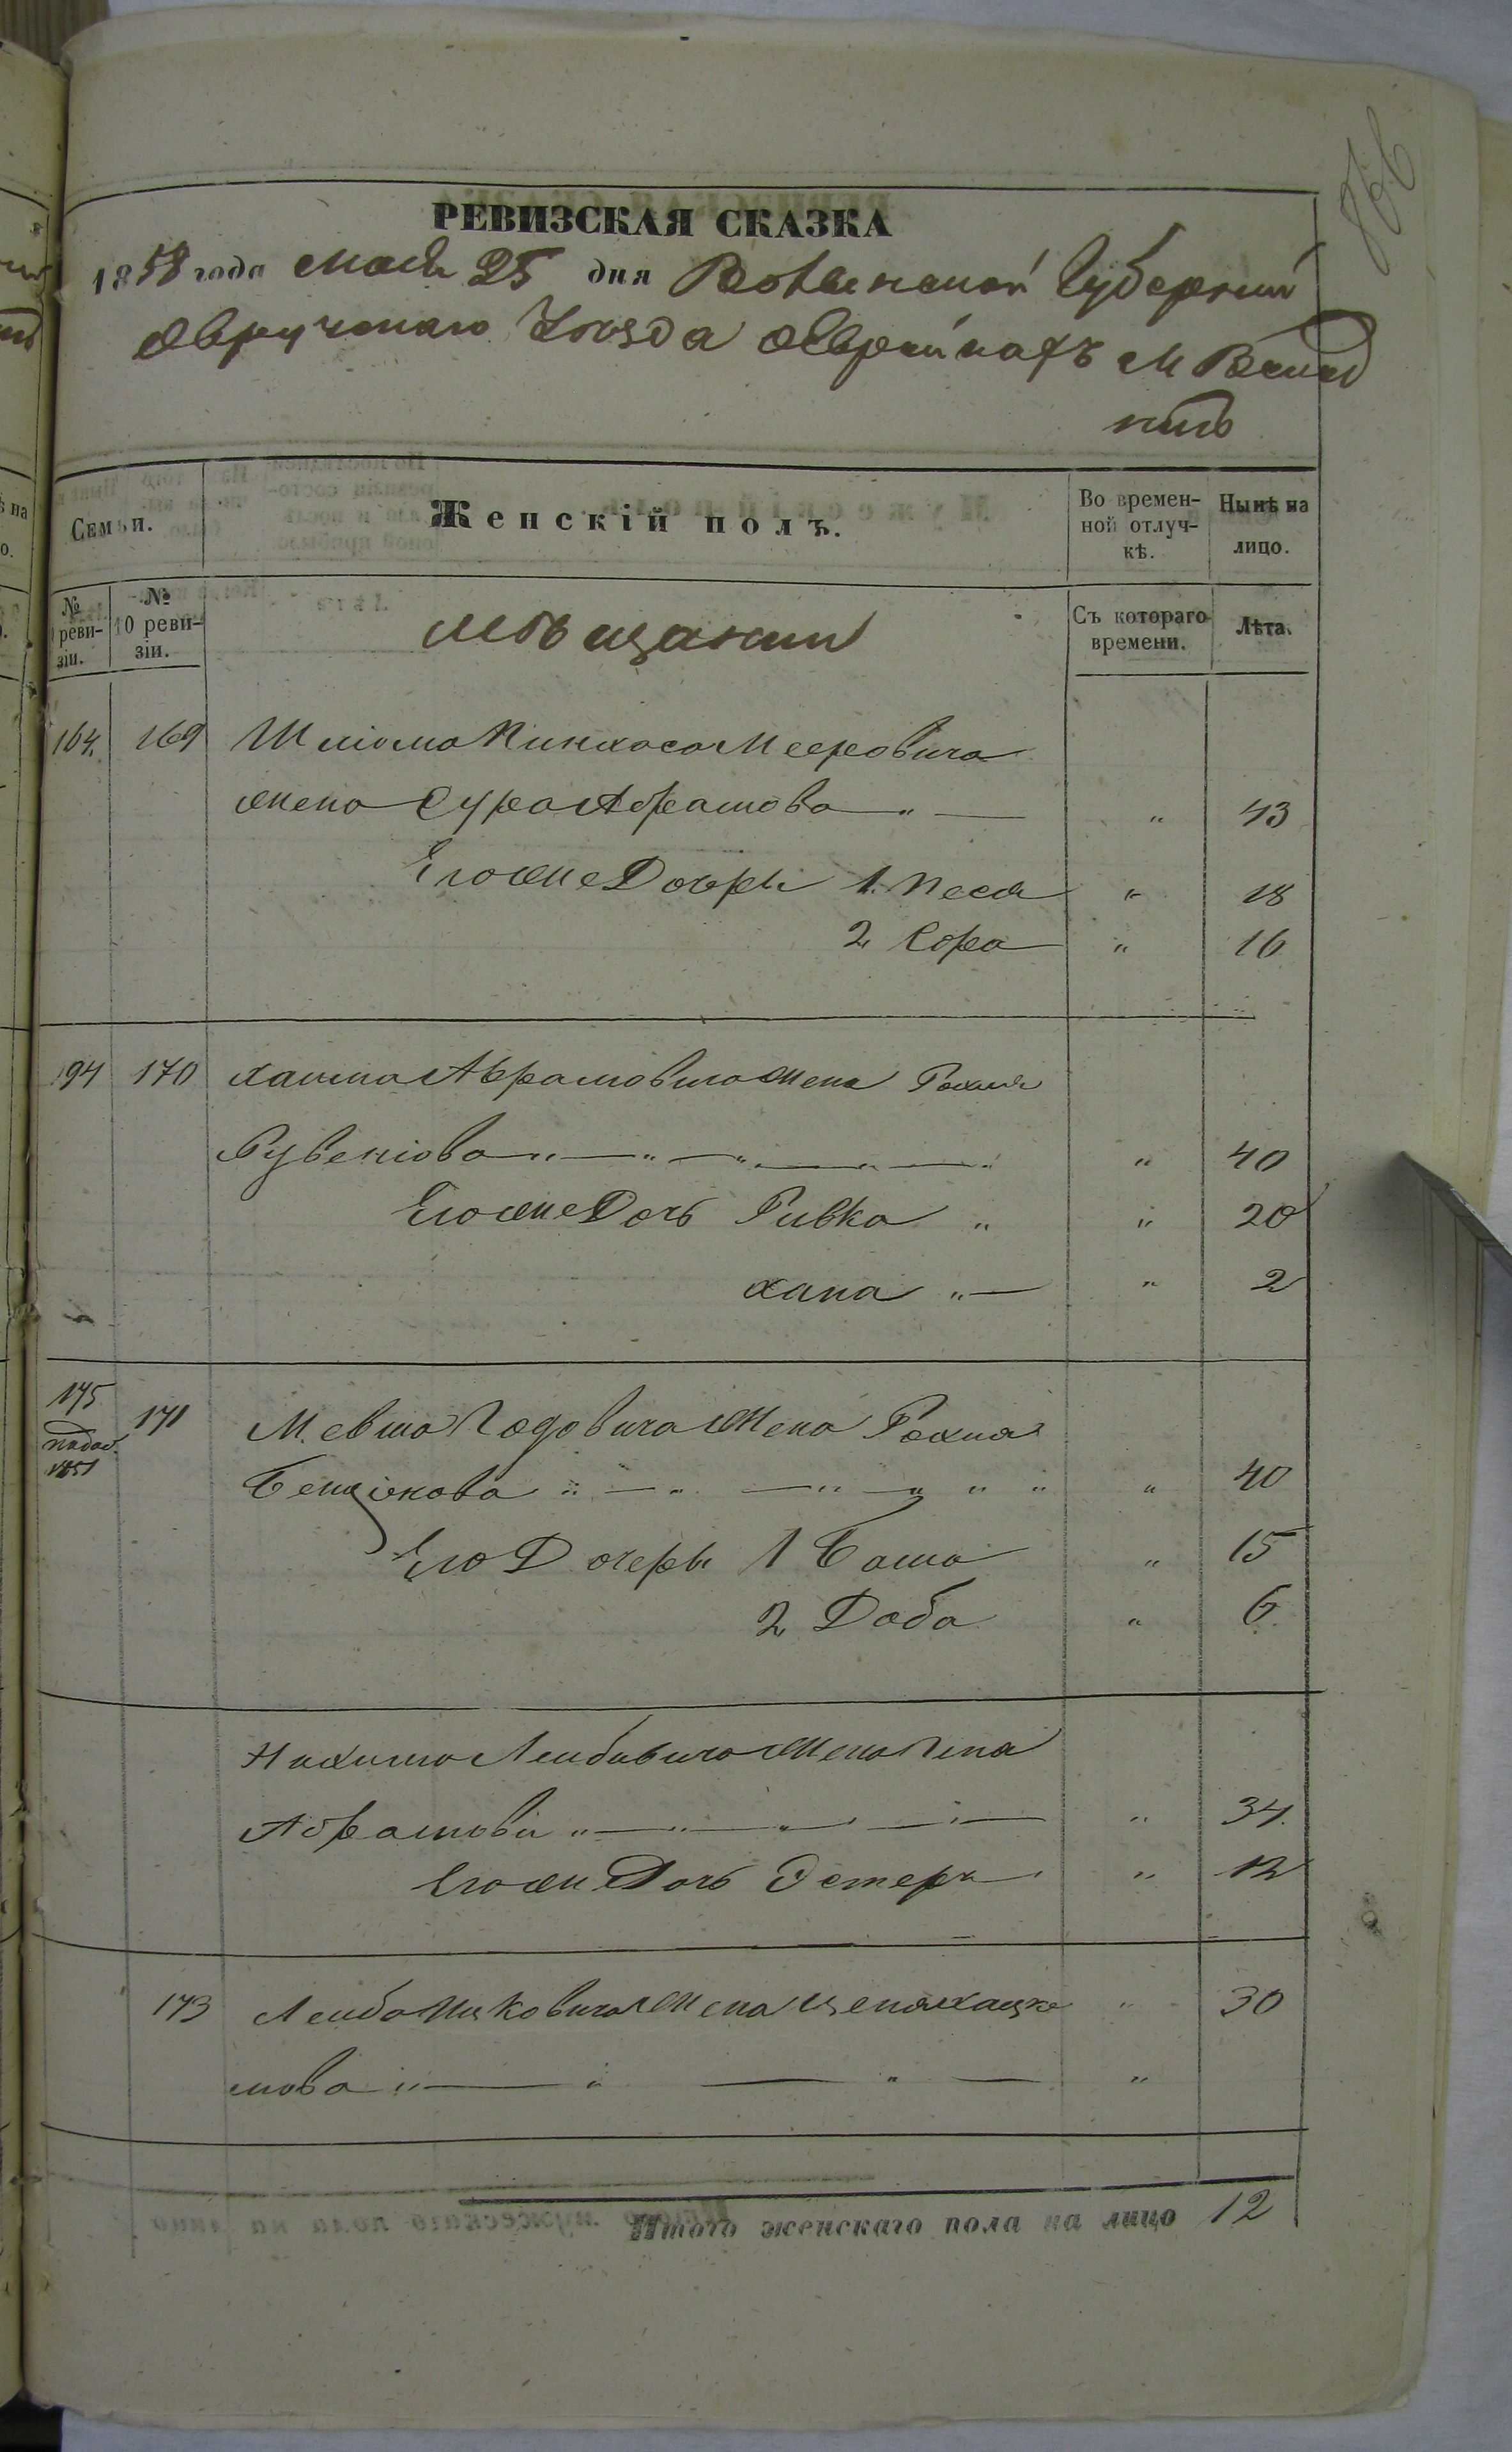 РЕВИЗСКАЯ СКАЗКА
1858 года Мая 25 дня Волынской Губернии
Овручскаго Уѣзда
Семьи.
Женскій полъ.
Во времен-
ной отлуч-
кѣ.
Нынѣ на
лицо.
№
реви-
зіи.
№
10 реви-
зіи.
Мѣщанки
Съ котораго
времени.
Лѣта.
164. 169 Шліома Пинхаса Мееровича
жена Сура Абрамова „ — „ 43
Егоже Дочери 1. Песя „ 18
2 Сора „ 16
194 170 Хаима Абрамовича жена Рохля
Рувеніова „ — „ — „ — „ — „ „ 40
Егоже Дочь Ривка „ „ 20
Хана „ — „ 2
175
1851
171 Мевша Годовича жена Рохля
Бенціонова „ — „ — „ — „ „ „ „ 40
Его Дочери 1 Бася „ 15
2 Доба „ 6
Нахима Лейбовича жена
Абрамова „ — „ — „ — „ — „ 34.
Егоже Дочь Эстера „ 12
173 Лейба Ицковича жена „ 30
мова „ — „ — „ — „
Итого женскаго пола на лицо 12